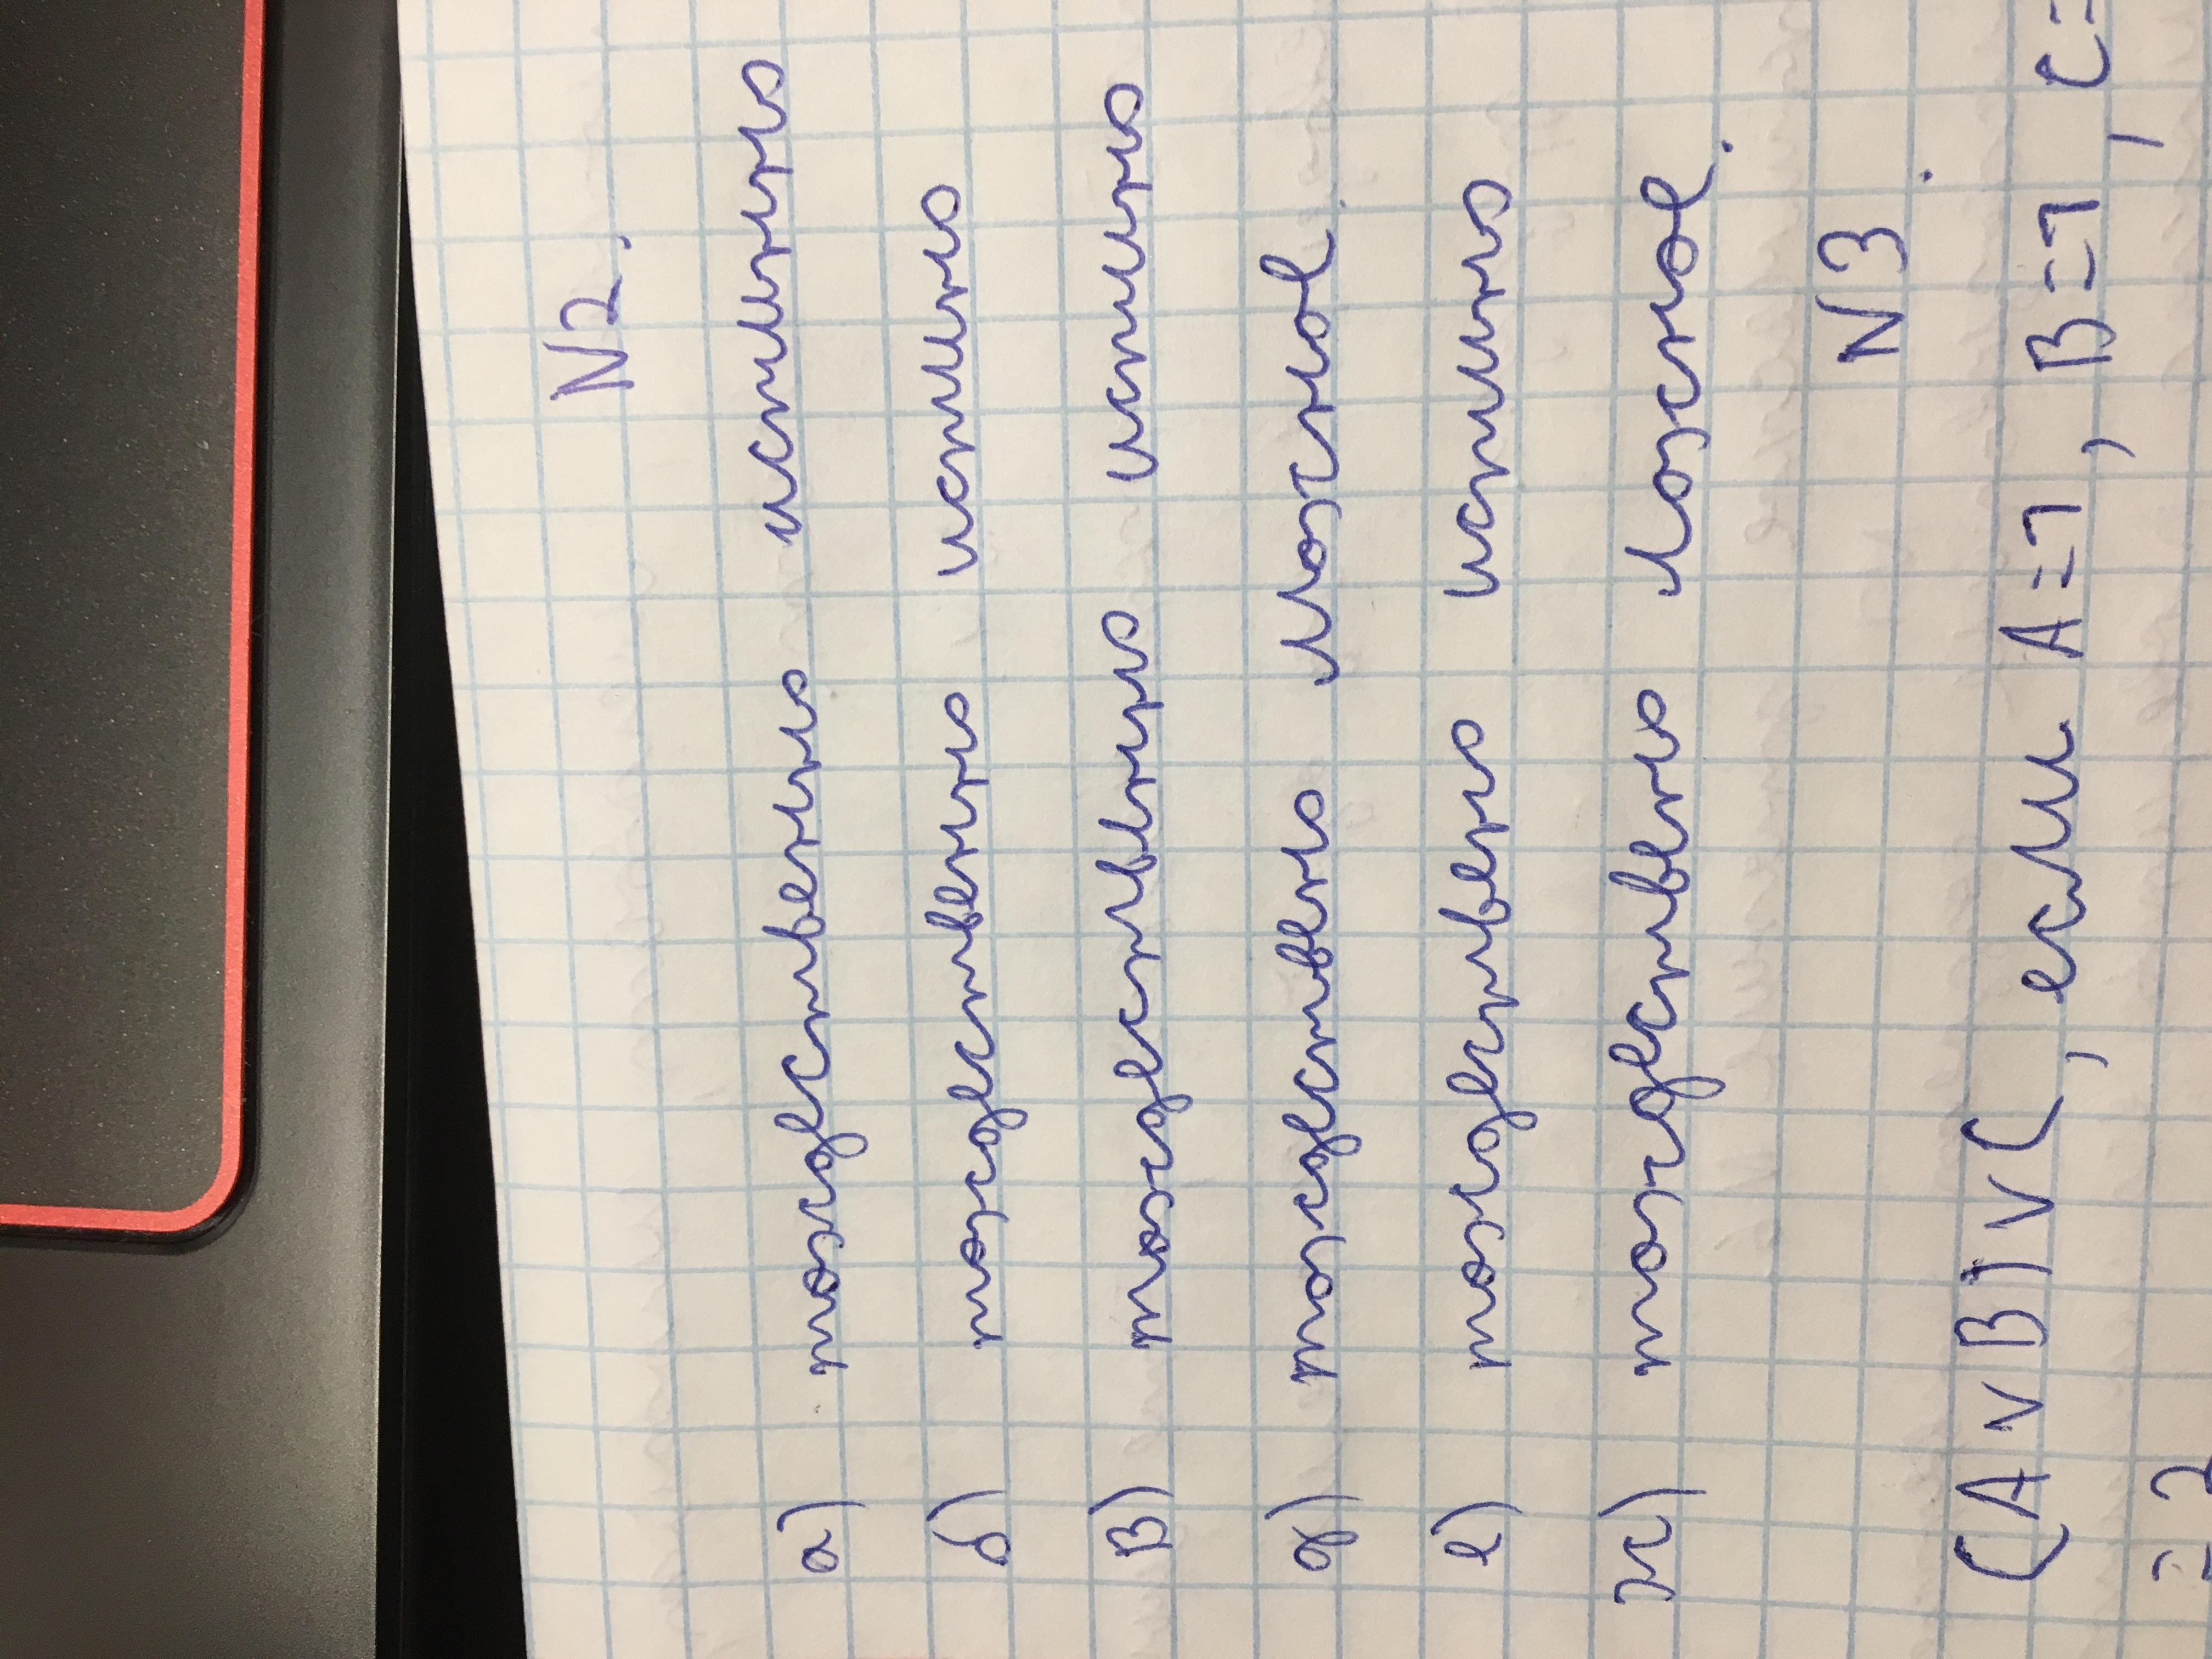 N2.
а) тождественно истинно
б) тождественно истинно
в) тождественно истинно
д) тождественно ложно.
е) тождественно истинно
ж) тождественно ложно.
N3.
(A v B) v C, если A=1, B=1, C=
=?